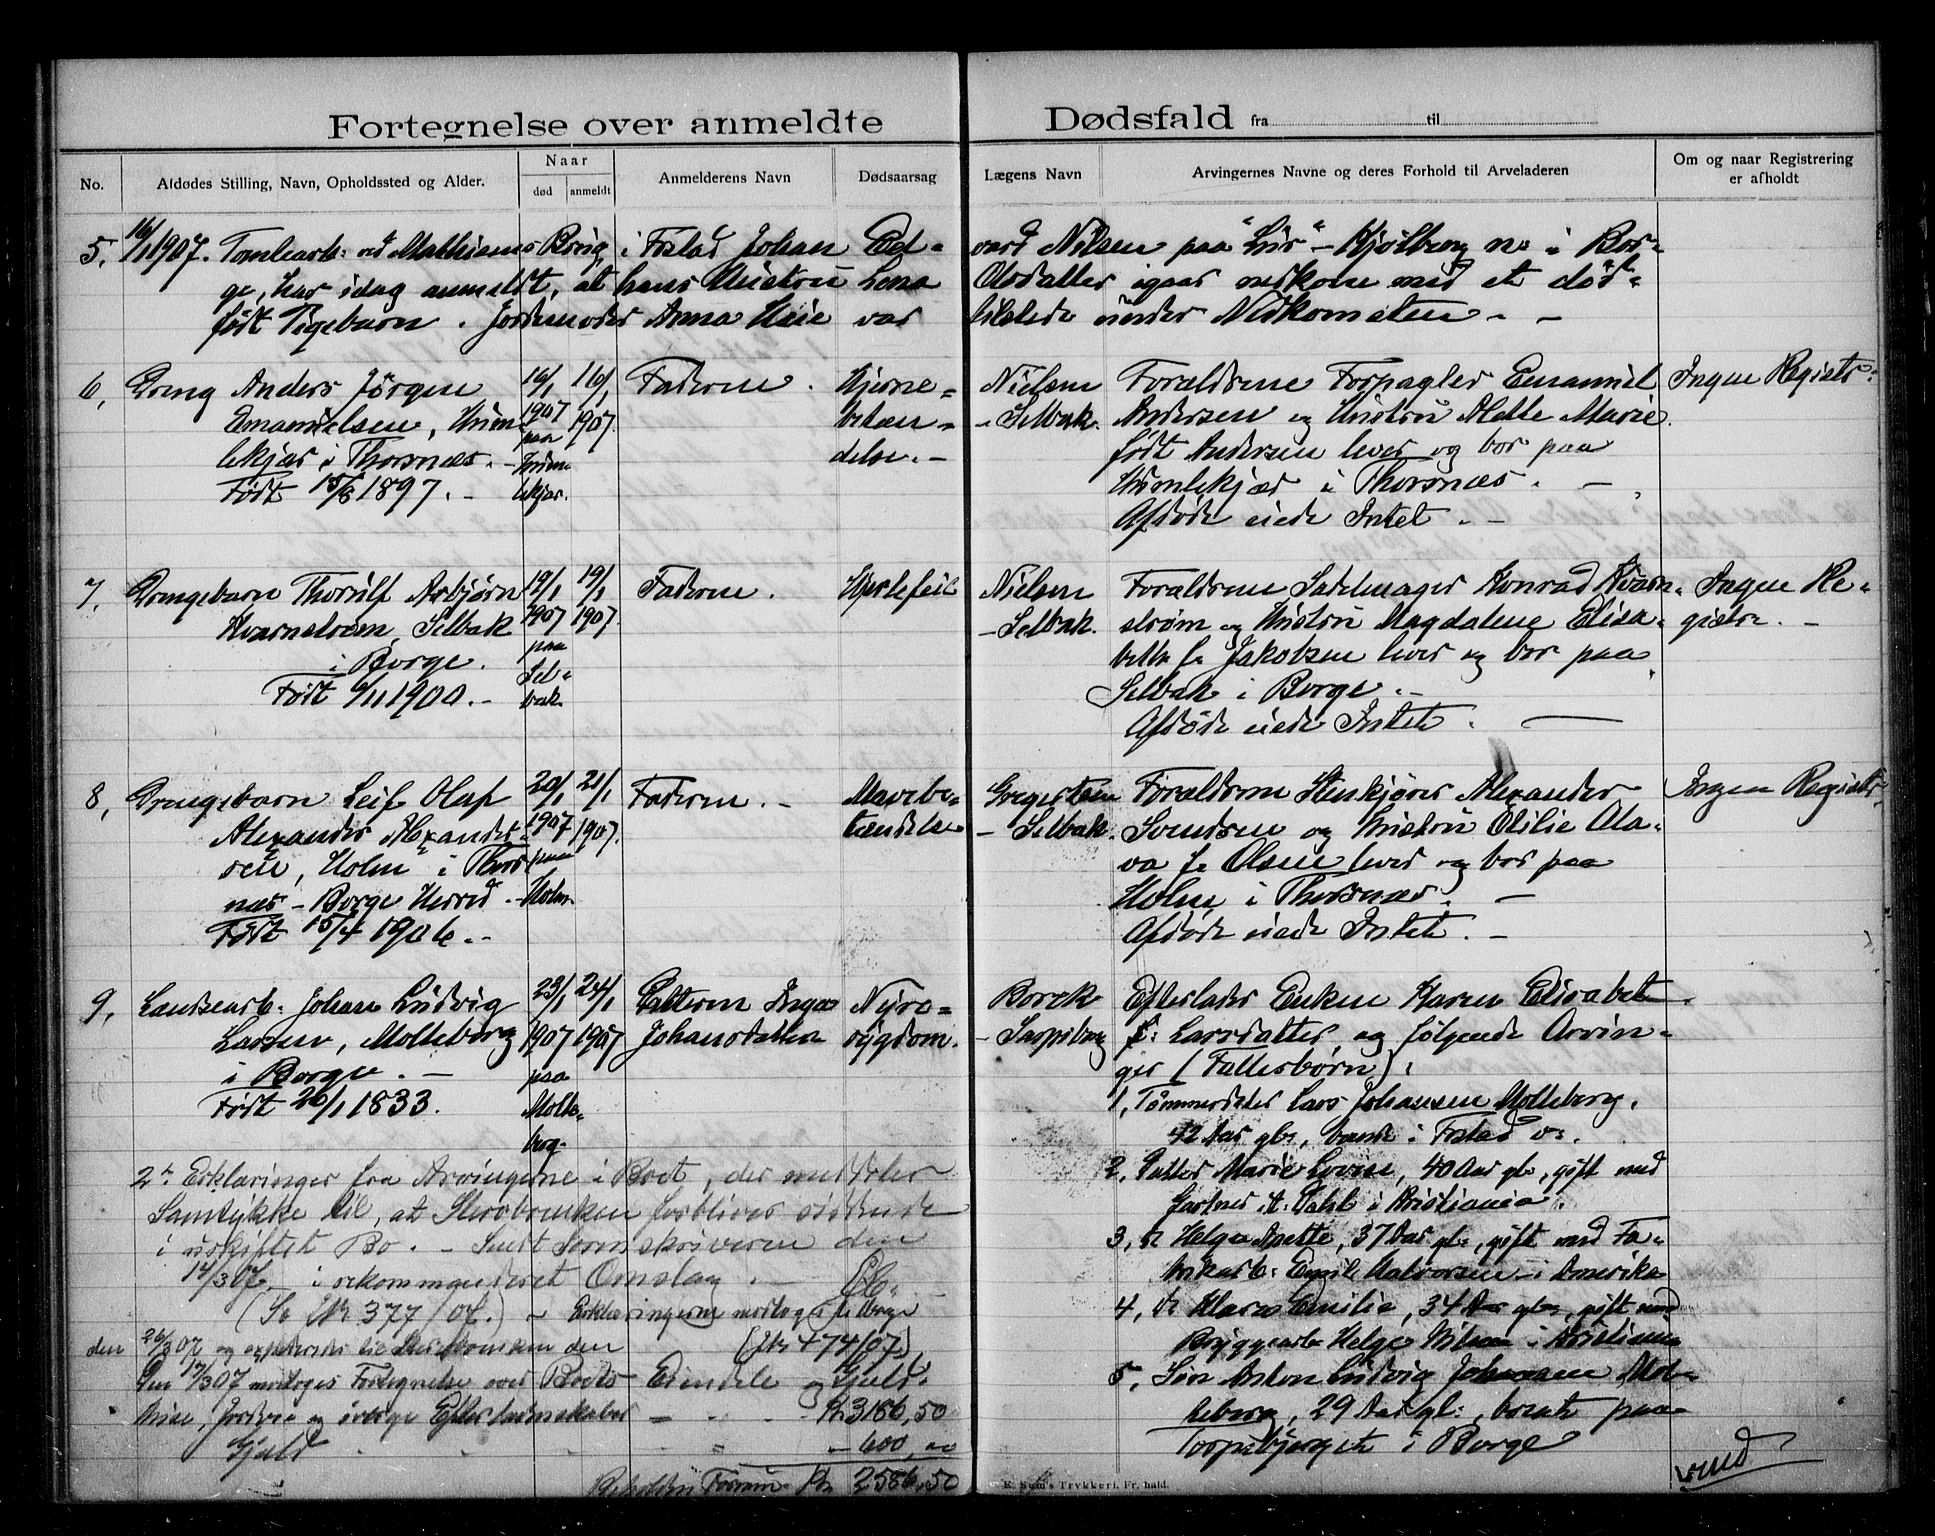 Fortegnelse over anmeldte Dødsfald fra til
No. Afdødes Stilling, Navn, Opholdssted og Alder. Naar død anmeldt Anmelderens Navn Dødsaarsag Lægens Navn Arvingernes Navne og deres Forhold til Arveladeren Om og naar Registrering er afholdt
5. 16/1 1907. Tomtearb: ved Mathiesens Brug, i Fºstad Johan Ed-vard Nilsen paa "Lis" - Kjölberg n: i Bor-
ge, har idag anmeldt, at hans Hustru Lena Olsdatter igaar nedkom med et död-
födt Pigebarn. Jordemoder Anna Heie var tilstede under Nedkomsten. -
6, Dreng Anders Jørgen
Emanuelsen, Hum-
lekjær i Thorsnæs. -
Født 15/8 1897. -
16/1
1907
paa
Hum-
lekjær.
16/1
1907.
Faderen.
Hjerne-
betæn-
delse. -
Nielsen
- Selbak.
Forældrene Forpagter Emanuel
Andersen og Hustru Alette Marie
født Andersen lever og bor paa
Humlekjær i Thorsnæs. -
Afdöde eiede Intet. -
Ingen Registr:
7, Drengebarn Thorulf Asbjørn
Kvarnstrøm, Selbak
i Borge.
Født 6/11 1900. -
19/1
1907
paa
Sel-
bak.
19/1
1907.
Faderen.
Hjertefeil
Nielsen
- Selbak.
Forældrene Sadelmager Konrad Kvarn-
strøm og Hustru Magdalene Elisa-
beth f. Jakobsen lever og bor paa
Selbak i Borge. -
Afdöde eiede Intet. -
Ingen Re-
gistr. -
8, Drengebarn Leif Olaf
Alexander Alexander-
sen, "Holm" i Thors-
næs - Borge Herred. -
Født 15/4 1906. -
20/1
1907
paa
Holm.
21/1
1907.
Faderen. -
Mavebe-
tændelse
Gregersen
- Selbak.
Forældrene Stenkjører Alexander
Svendsen og Hustru Otilie Ola-
va f. Olsen lever og bor paa
Holm i Thorsnæs. -
Afdöde eiede Intet. -
Ingen Registr.
9, Landsearb. Johan Ludvig
Larsen, Molteberg
i Borge. -
Født 26/1 1833.
23/1
1907
paa
Molte-
berg.
24/1
1907
Datteren Inga
Johansdatter
Nyre-
sygdom.
Borck
- Sarpsborg
Efterlader Enken Karen Elisabet
f: Larsdatter, og følgende Arvin-
ger (Fællesbørn):
1, Tömmerdeler Lars Johansen Molteberg,
42 Aar gl:, boende i Fºstad v:.
2, Datter Marie Lovise, 40 Aar gl:, gift med
Gartner A. Dahl i Kristiania.
3, do Helga Anette, 37 Aar gl:, gift med Fa-
brikarb: Emil Halvorsen i Amerika
4, do Klara Emilie, 34 Aar gl:, gift med
Bryggearb: Helge Nilsen i Kristiania
5, Søn Anton Ludvig Johansen Mol-
teberg, 29 Aar gl:, boende paa
Torpebjerget i Borge
vend
2de Erklæringer fra Arvingerne i Boet, der meddeler
Samtykke til, at Skrobenken forblives siddende
i uskiftet Bo. - Sendt Sorenskriveren den
14/3 07 i rekommanderet Omslag. -
(Se JNr 377/07.) - Erklæringerne modtoges tilbage
den 26/3 07 og den (JNr 474/07)
Den 17/3 07 modtoges Fortegnelse over Boets Eiendele og Gjæld.
Huse, Jordvei og øvrige Efterladenskaber - Kr 3186,50
Gjæld - 600,00
Beholden Formue Kr 2586,50
E. Sem's Trykkeri, Fr.hald.